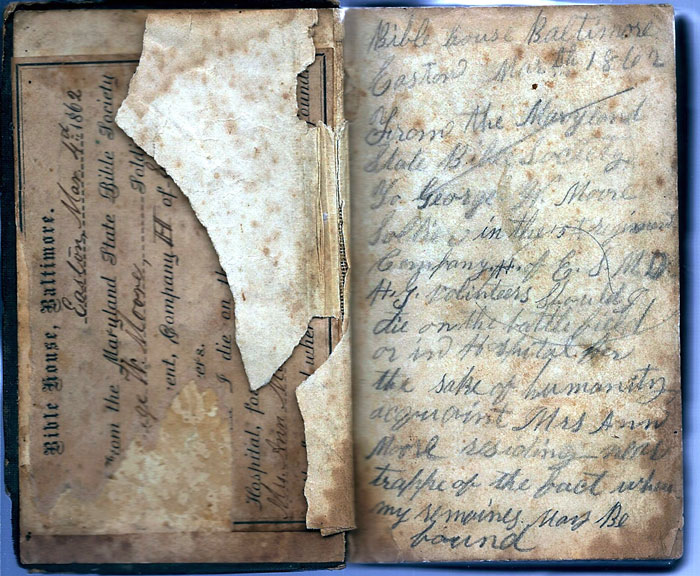 Bible House, Baltimore.
Easton Mar 4th 1862
From the Maryland State Bible Society
ge W. Moore
ent, Company H of
ers.
I die on the
Hospital, for
Mrs Ann M
Bible house Baltimore
Easton March 1862
From the Maryland
State Bible Society
To George W. Moore
Soldier in the
Company H. of E. S. M. D.
H. G. Volunteers Should I
die on the battlefield
or in Hospital for
the sake of humanity
acquaint Mrs Ann
Moore residing near
trappe of the fact where
my remaines May Be
found